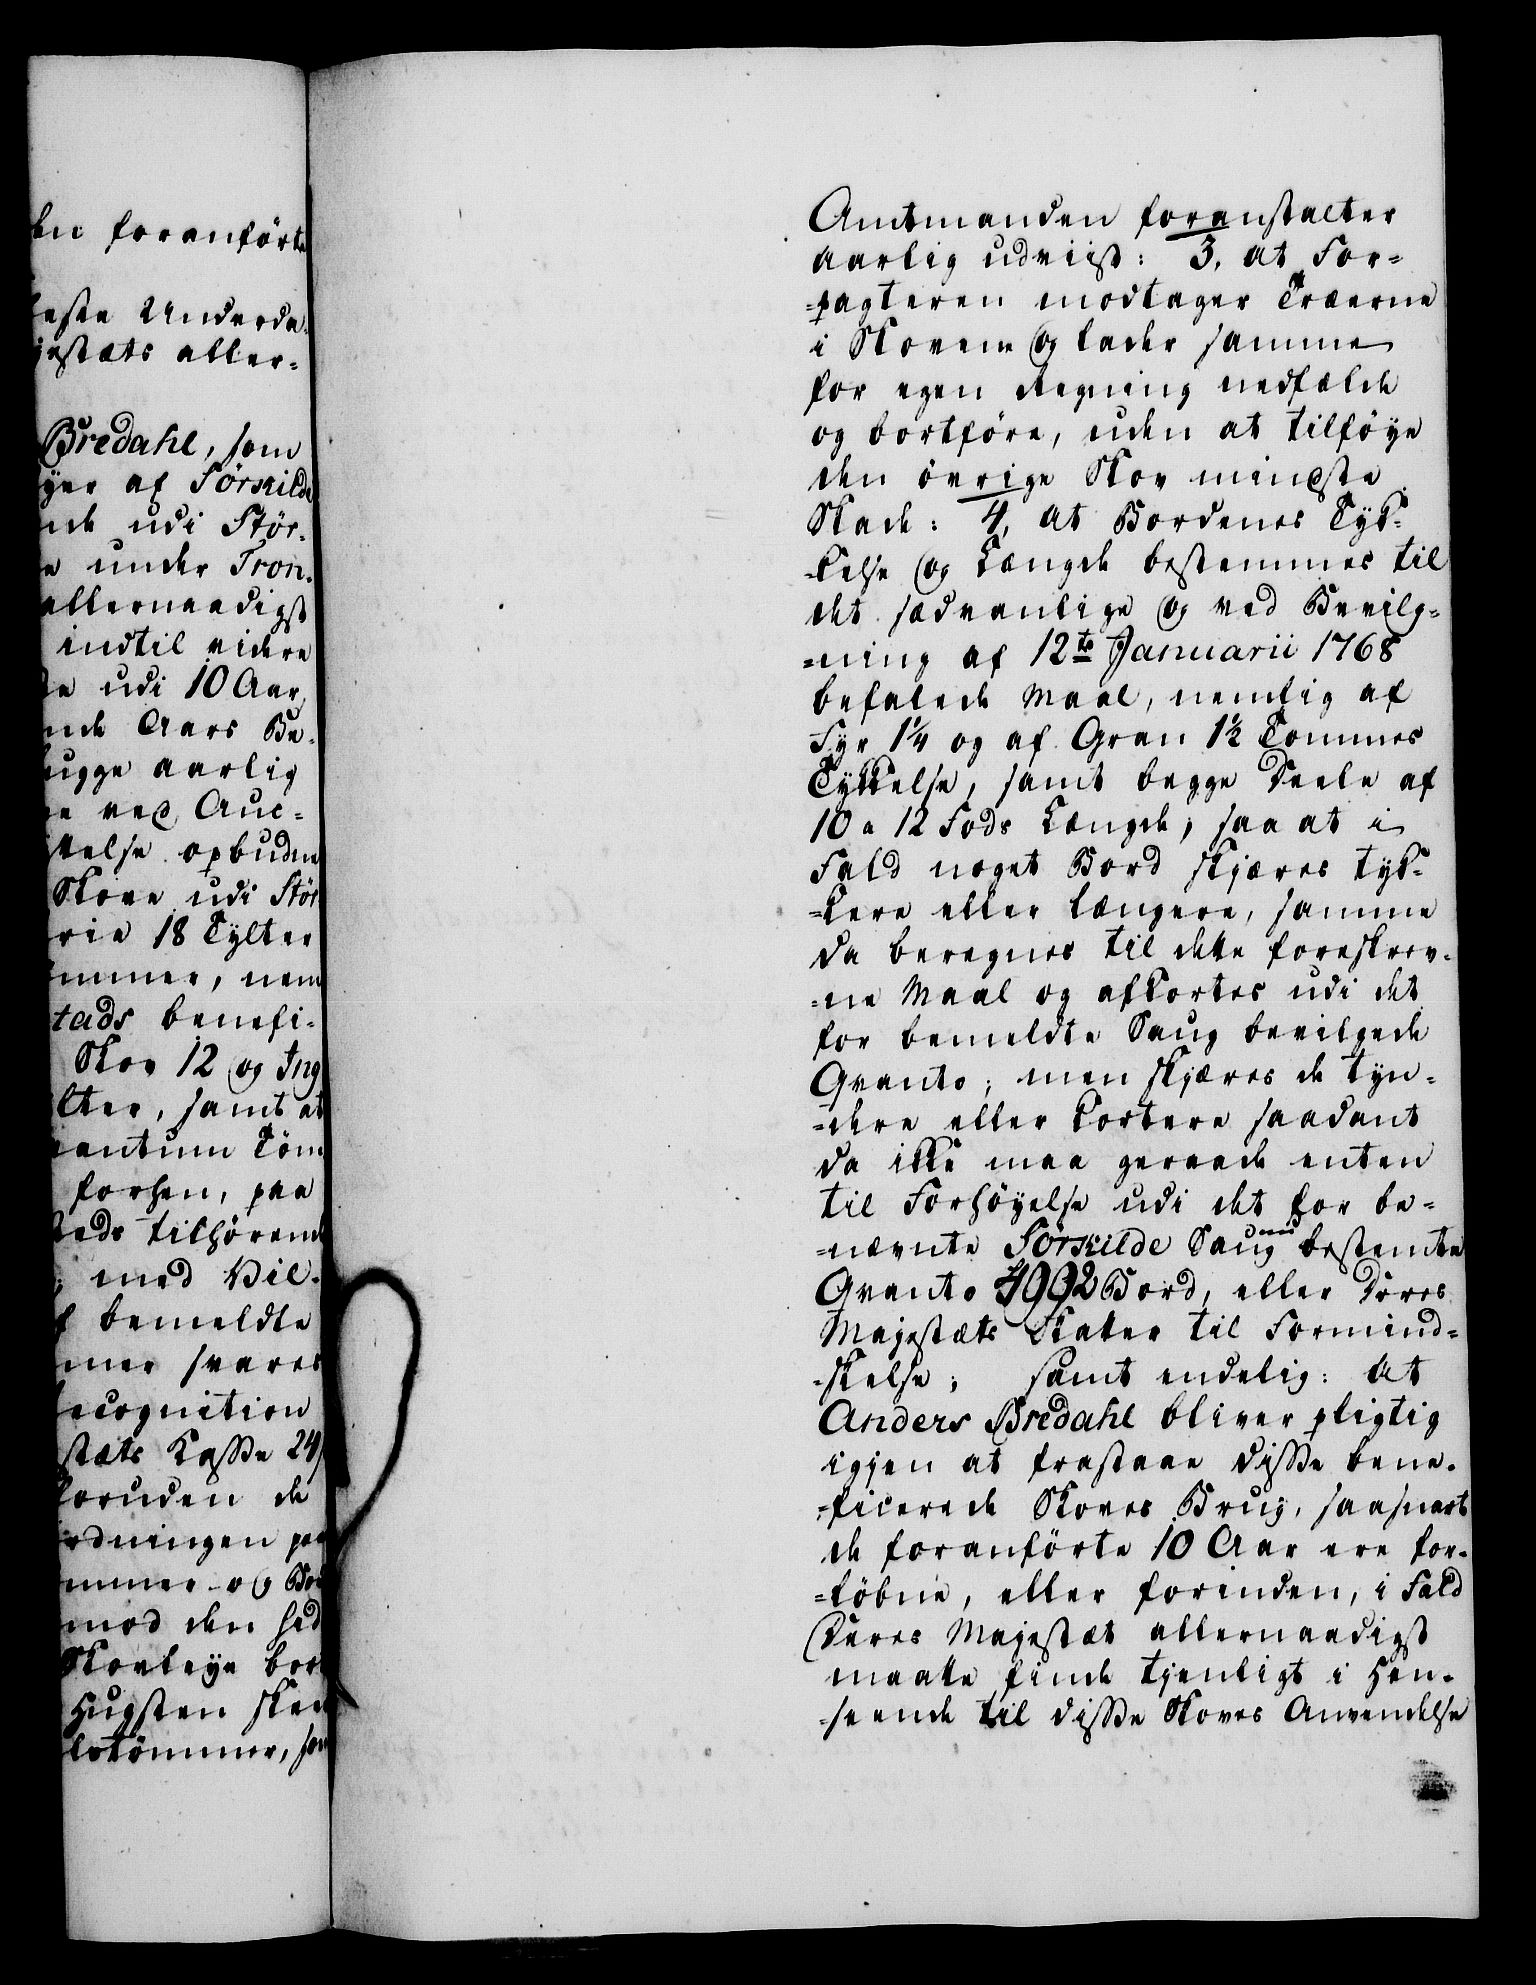 en foranförte
este Underda-
jestæts aller-
Bredahl, som
yer af Sörkilde
nde udi Stör-
e under Tron-
allernaadigst
indtil videre
te udi 10 Aar,
nde Aars Be-
ugge aarlig
e ved Auc-
telse opbudne
Skove udi Stör
rie 18 Tylter
mmer, nem
tads benefi-
Skov 12 og Ing
lter, samt at
antum Töm
forhen, paa
teds tilhörende
med Vil-
f bemeldte
mer svares
ecognition
stæts Kasse 24
foruden de
rdningen paa
mmer og Bor
mod den sed
Skovleye bort
Hugsten skee
lstömmer, som
Amtmanden foranstalter
aarlig udviist: 3, at For-
-pagteren modtager Træerne
i Skovene og lader samme
for egen Regning nedfælde
og bortföre, uden at tilföye
den övrige Skov mindste
Skade: 4, At Bordenes Tyk-
-kelse og Længde bestemmes til
det sædvanlige og ved Bevilg-
-ning af 12te Januarii 1768
befalede Maal, nemlig af
Fyr 1¼ og af Gran 1½ Tommes
Tykkelse, samt begge Deele af
10 a 12 Fods Længde; saa at i
Fald noget Bord skjæres tyk-
-kere eller længere, samme
da beregnes til dette foreskrev-
-ne Maal og afkortes udi det
for bemeldte Saug bevilgede
Qvanto; men skjæres de tyn-
-dere eller kortere saadant
da ikke maa geraade enten
til Forhöyelse udi det for be-
-nævnte Sörkilde Saug bestemte
Qvanto 4992 Bord, eller Deres
Majestæts Skatter til Formind-
-skelse; samt endelig: At
Anders Bredahl bliver pligtig
igjen at frastaae disse bene-
-ficerede Skoves Brug, saasnart
de foranförte 10 Aar ere for-
-löbne, eller forinden, i Fald
Deres Majestæt allernaadigst
maatte finde tjenligt i Hen-
-seende til disse Skoves Anvendelse